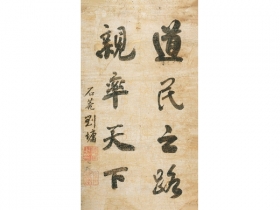 道民之路
親率天下
石菴劉墉